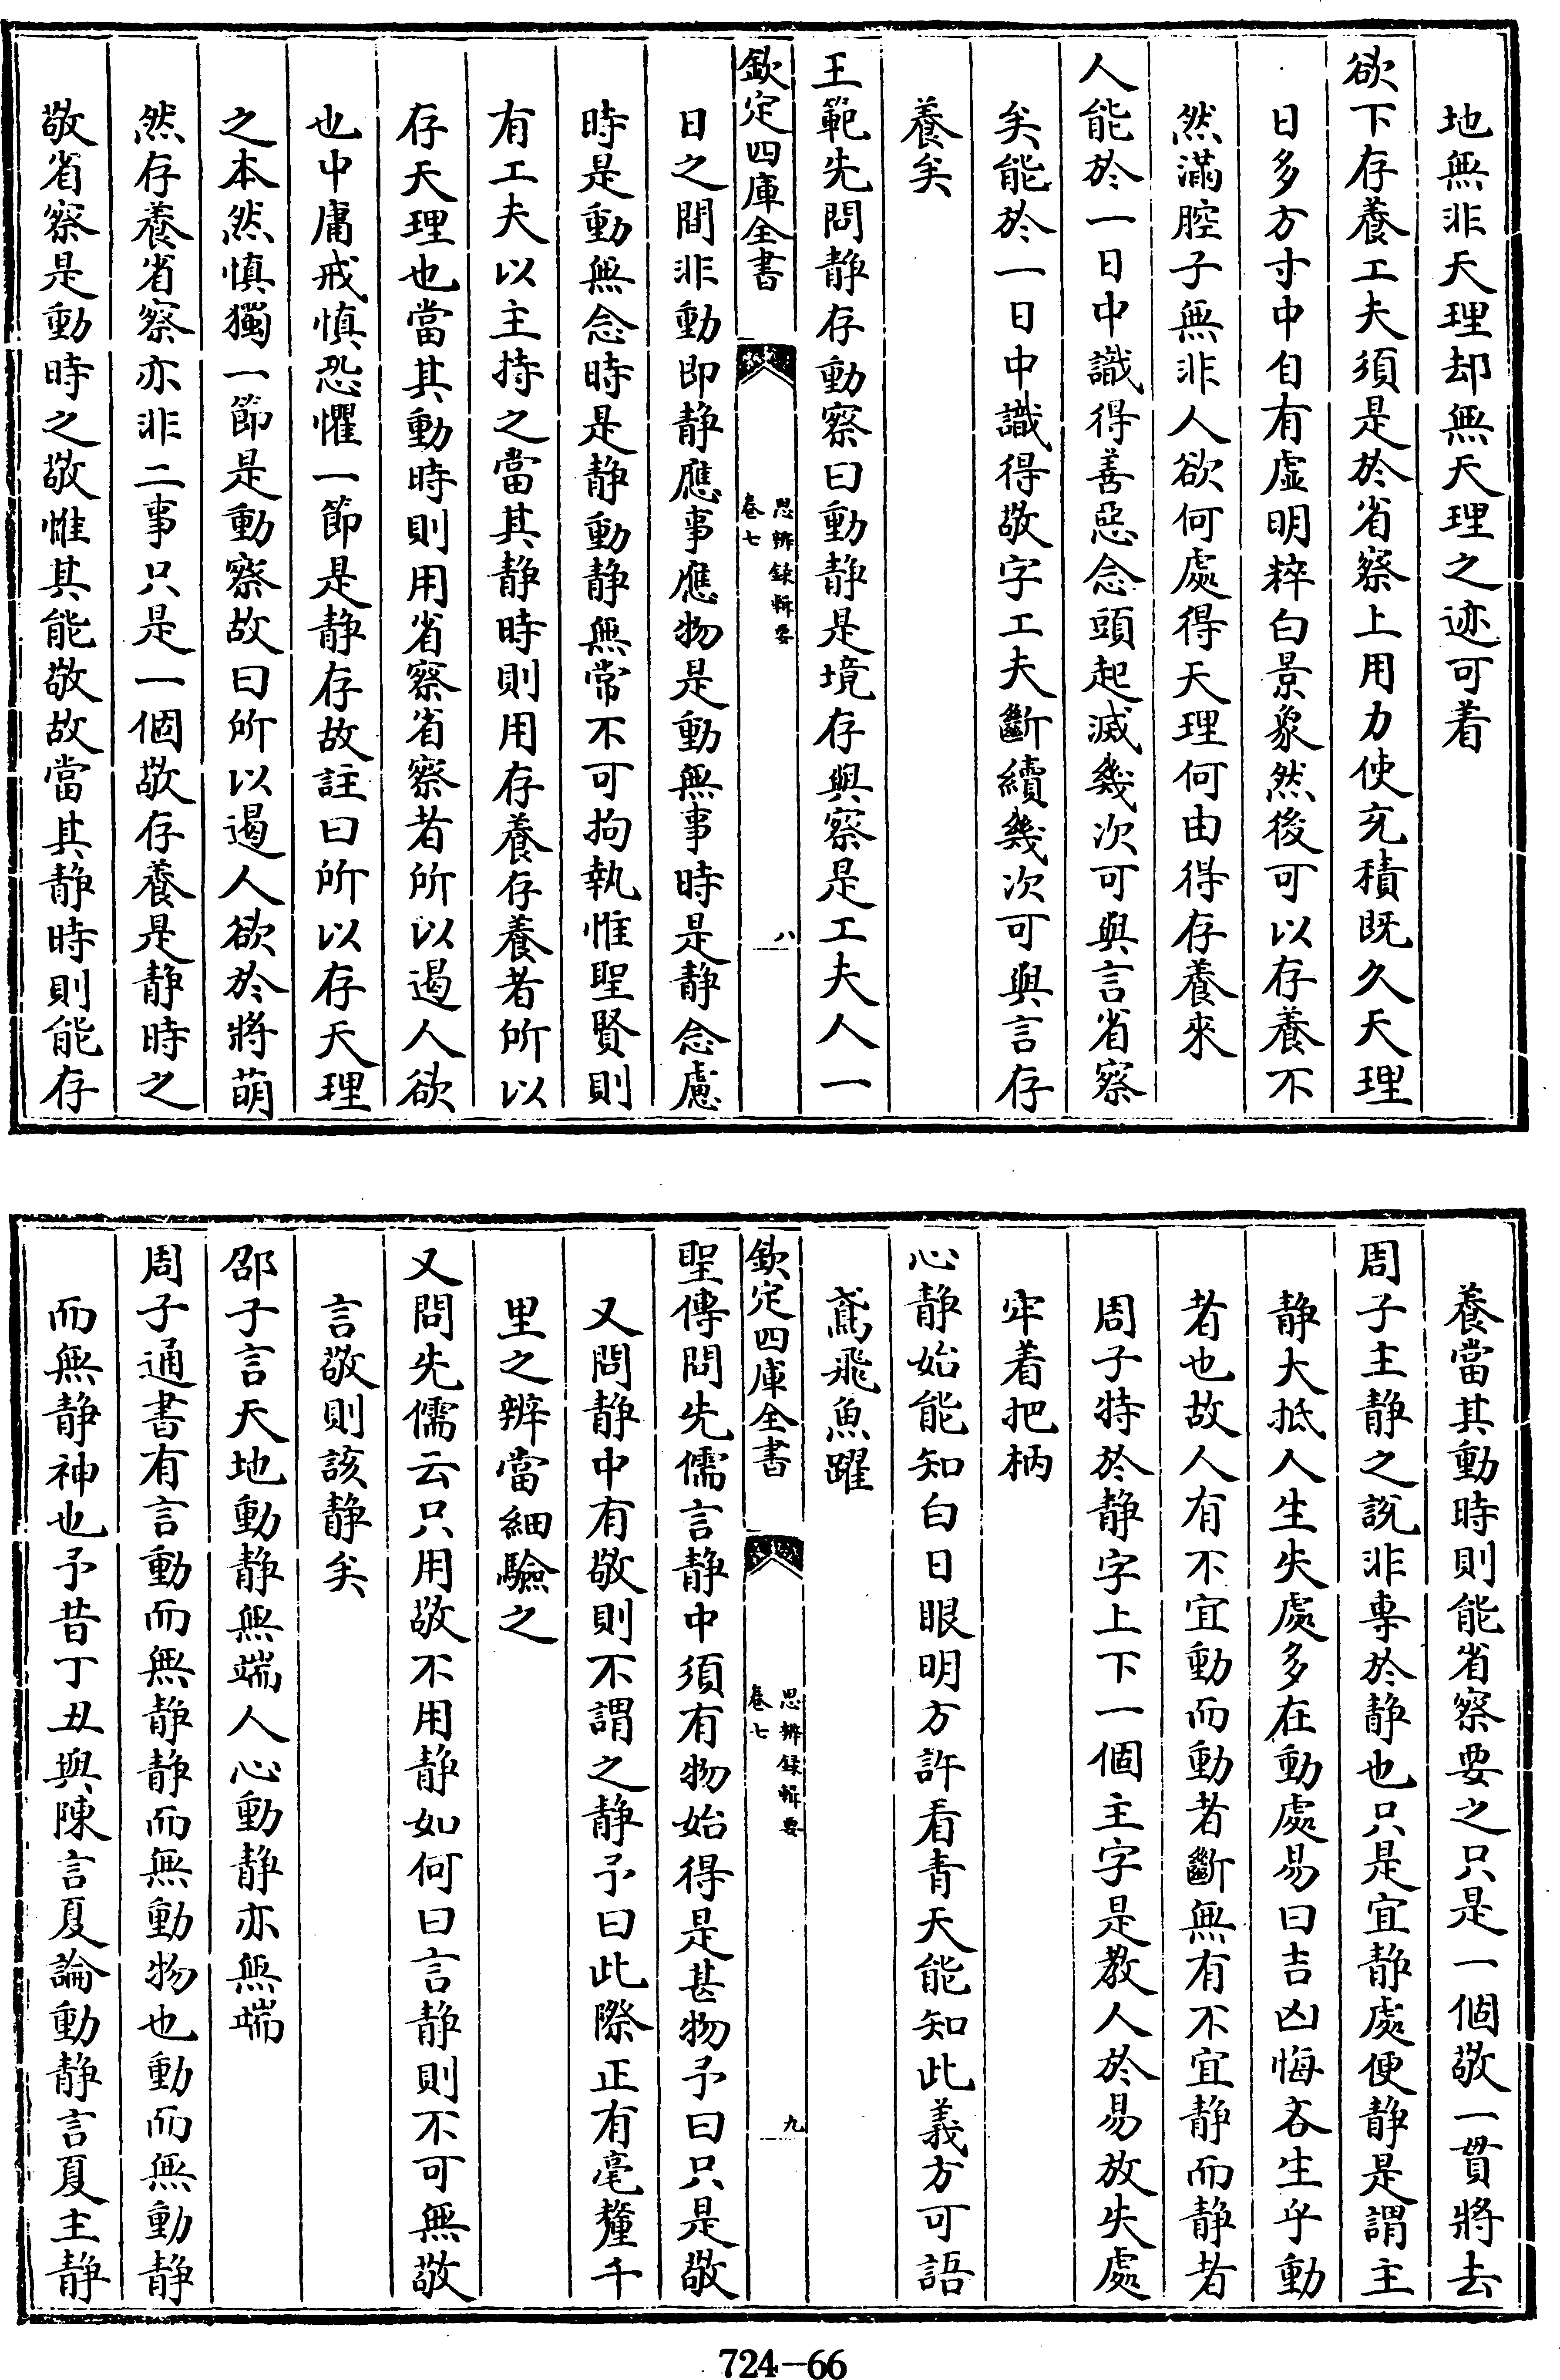 地無非天理却無天理之迹可着
欲下存養工夫須是於省察上用力使充積既久天理
日多方寸中自有虚明粹白景象然後可以存養不
然滿腔子無非人欲何處得天理何由得存養來
人能於一日中識得善惡念頭起滅幾次可與言省察
矣能於一日中識得敬字工夫斷續幾次可與言存
養矣
王範先問静存動察曰動静是境存與察是工夫人一
欽定四庫全書
思辨録輯要
卷七
八
日之間非動即静應事應物是動無事時是静念慮
時是動無念時是静動静無常不可拘執惟聖賢則
有工夫以主持之當其静時則用存養存養者所以
存天理也當其動時則用省察省察者所以遏人欲
也中庸戒慎恐懼一節是静存故註曰所以存天理
之本然慎獨一節是動察故曰所以遏人欲於將萌
然存養省察亦非二事只是一個敬存養是静時之
敬省察是動時之敬惟其能敬故當其静時則能存
養當其動時則能省察要之只是一個敬一貫將去
周子主静之説非専於静也只是宜静處便静是謂主
静大抵人生失處多在動處易曰吉凶悔吝生乎動
者也故人有不宜動而動者斷無有不宜静而静者
周子特於静字上下一個主字是教人於易放失處
牢着把柄
心静始能知白日眼明方許看青天能知此義方可語
鳶飛魚躍
欽定四庫全書
思辨録輯要
卷七
九
聖傳問先儒言静中須有物始得是甚物予曰只是敬
又問静中有敬則不謂之静予曰此際正有毫釐千
里之辨當細驗之
又問先儒云只用敬不用静如何曰言静則不可無敬
言敬則該静矣
邵子言天地動静無端人心動静亦無端
周子通書有言動而無静静而無動物也動而無動静
而無静神也予昔丁丑與陳言夏論動静言夏主静
724-66